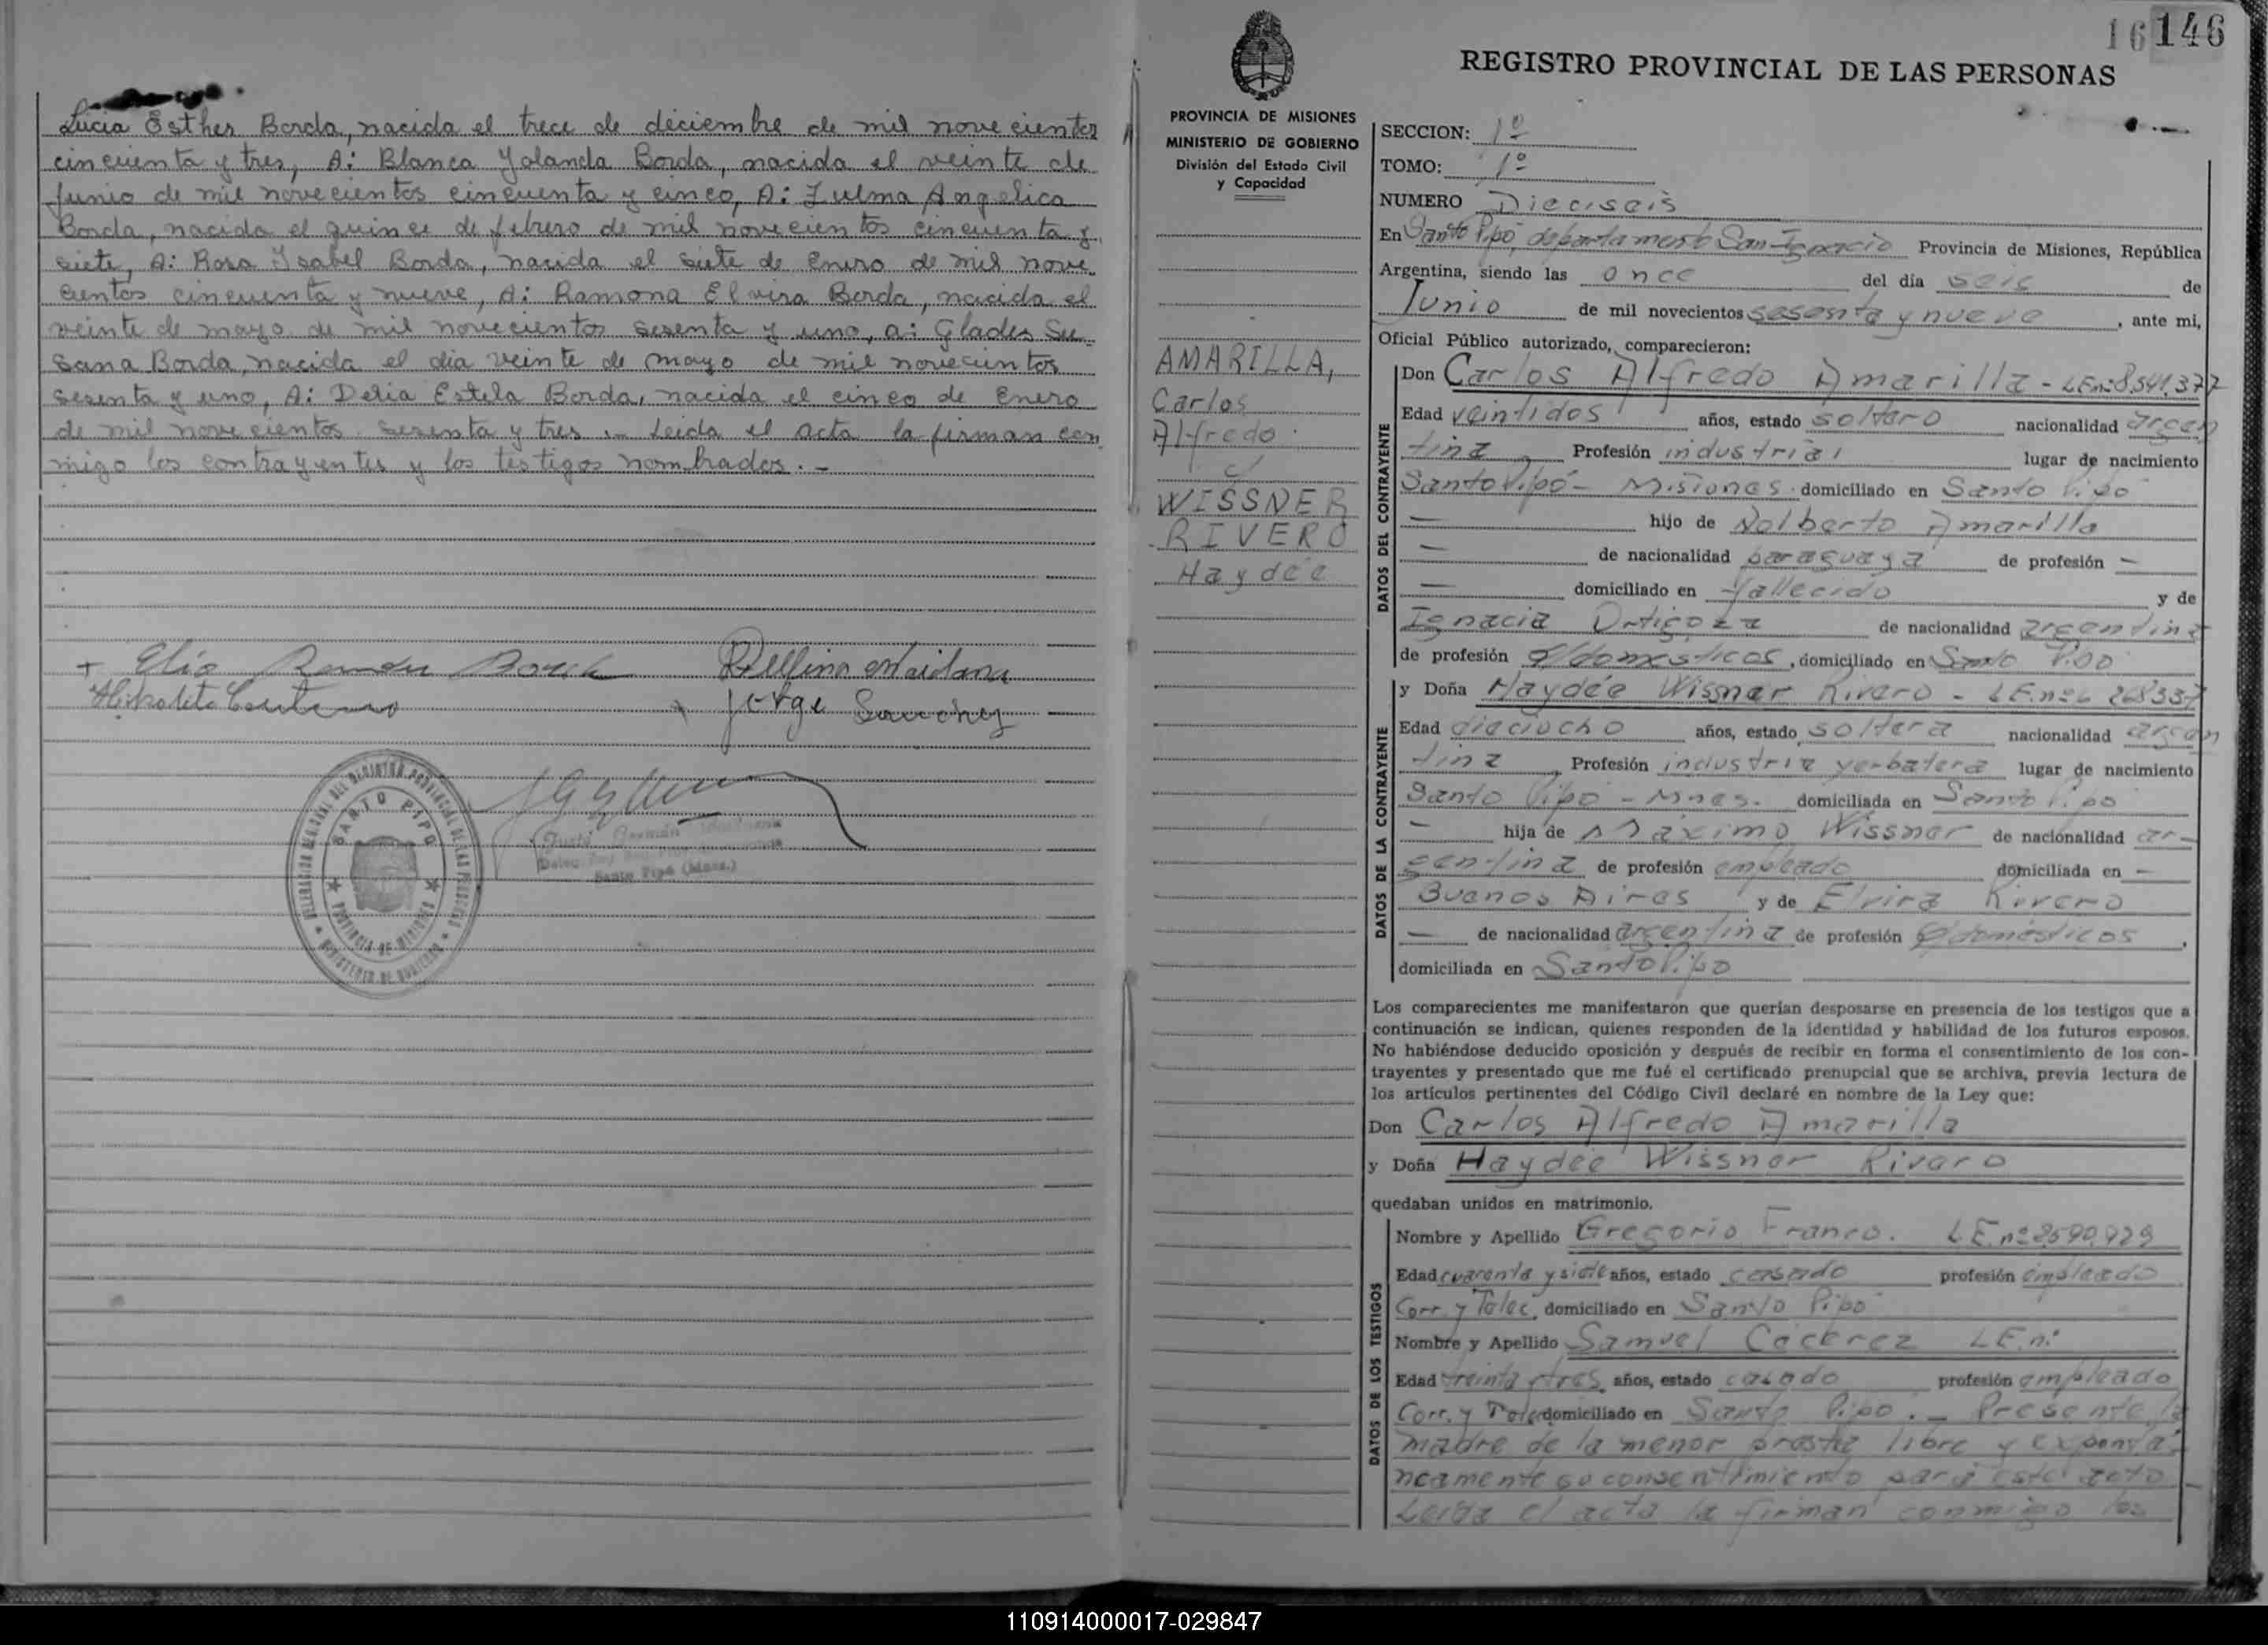 Lucia Esther Borda, nacida el trece de diciembre de mil novecientos
cincuenta y tres, A: Blanca Yolanda Borda, nacida el veinte de
Junio de mil novecientos cincuenta y cinco, A: Zulma Angelica
Borda, nacida el quince de febrero de mil novecientos cincuenta y
siete, A: Rosa Isabel Borda, nacida el siete de Enero de mil nove
cientos cincuenta y nueve, A: Ramona Elvira Borda, nacida el
veinte de mayo de mil novecientos sesenta y uno, a: Glades Su
sana Borda, nacida el dia veinte de mayo de mil novecientos
sesenta y uno, A: Delia Estela Borda, nacida el cinco de Enero
de mil novecientos sesenta y tres .- Leida el acta la firman con
migo los contrayentes y los testigos nombrados.-
Jorge Sanchez
SANTO PIPO
PROVINCIA DE MISIONES
MINISTERIO DE GOBIERNO
Santo Pipó (Mnes.)
16 146
REGISTRO PROVINCIAL DE LAS PERSONAS
PROVINCIA DE MISIONES
MINISTERIO DE GOBIERNO
División del Estado Civil
y Capacidad
AMARILLA,
Carlos
Alfredo
c/
WISSNER
RIVERO
Haydée
SECCION: 1º
TOMO: 1º
NUMERO Dieciseis
En Santo Pipó, departamento San Ignacio Provincia de Misiones, República
Argentina, siendo las once del día seis de
Junio de mil novecientos sesenta y nueve, ante mi,
Oficial Público autorizado, comparecieron:
DATOS DEL CONTRAYENTE
Don Carlos Alfredo Amarilla - L.E.nº 8.541.377
Edad veintidos años, estado soltero nacionalidad argen
tina Profesión industrial lugar de nacimiento
Santo Pipó - Misiones. domiciliado en Santo Pipó
— hijo de Adalberto Amarilla
— de nacionalidad paraguaya de profesión —
— domiciliado en fallecido y de
Ignacia Ortigoza de nacionalidad argentina
de profesión q/domésticos, domiciliado en Santo Pipó
DATOS DE LA CONTRAYENTE
y Doña Haydée Wissner Rivero - L.E.nº 6.268.337
Edad dieciocho años, estado soltera nacionalidad argen
tina, Profesión industria yerbatera lugar de nacimiento
Santo Pipó - Mnes. domiciliada en Santo Pipó
— hija de Máximo Wissner de nacionalidad ar-
gentina de profesión empleado domiciliada en —
Buenos Aires y de Elvira Rivero
— de nacionalidad argentina de profesión q/domésticos,
domiciliada en Santo Pipó
Los comparecientes me manifestaron que querían desposarse en presencia de los testigos que a
continuación se indican, quienes responden de la identidad y habilidad de los futuros esposos.
No habiéndose deducido oposición y después de recibir en forma el consentimiento de los con-
trayentes y presentado que me fué el certificado prenupcial que se archiva, previa lectura de
los artículos pertinentes del Código Civil declaré en nombre de la Ley que:
Don Carlos Alfredo Amarilla
y Doña Haydée Wissner Rivero
quedaban unidos en matrimonio.
DATOS DE LOS TESTIGOS
Nombre y Apellido Gregorio Franco. L.E.nº
Edad cuarenta y siete años, estado casado profesión empleado
Corr. y Telec. domiciliado en Santo Pipó
Nombre y Apellido Samuel Cácerez L.E.n:
Edad treinta y tres, años, estado casado profesión empleado
Corr. y Telec domiciliado en Santo Pipó. - Presente la
madre de la menor presta libre y expontá-
neamente su consentimiento para este acto
Leida el acta la firman conmigo los
110914000017-029847